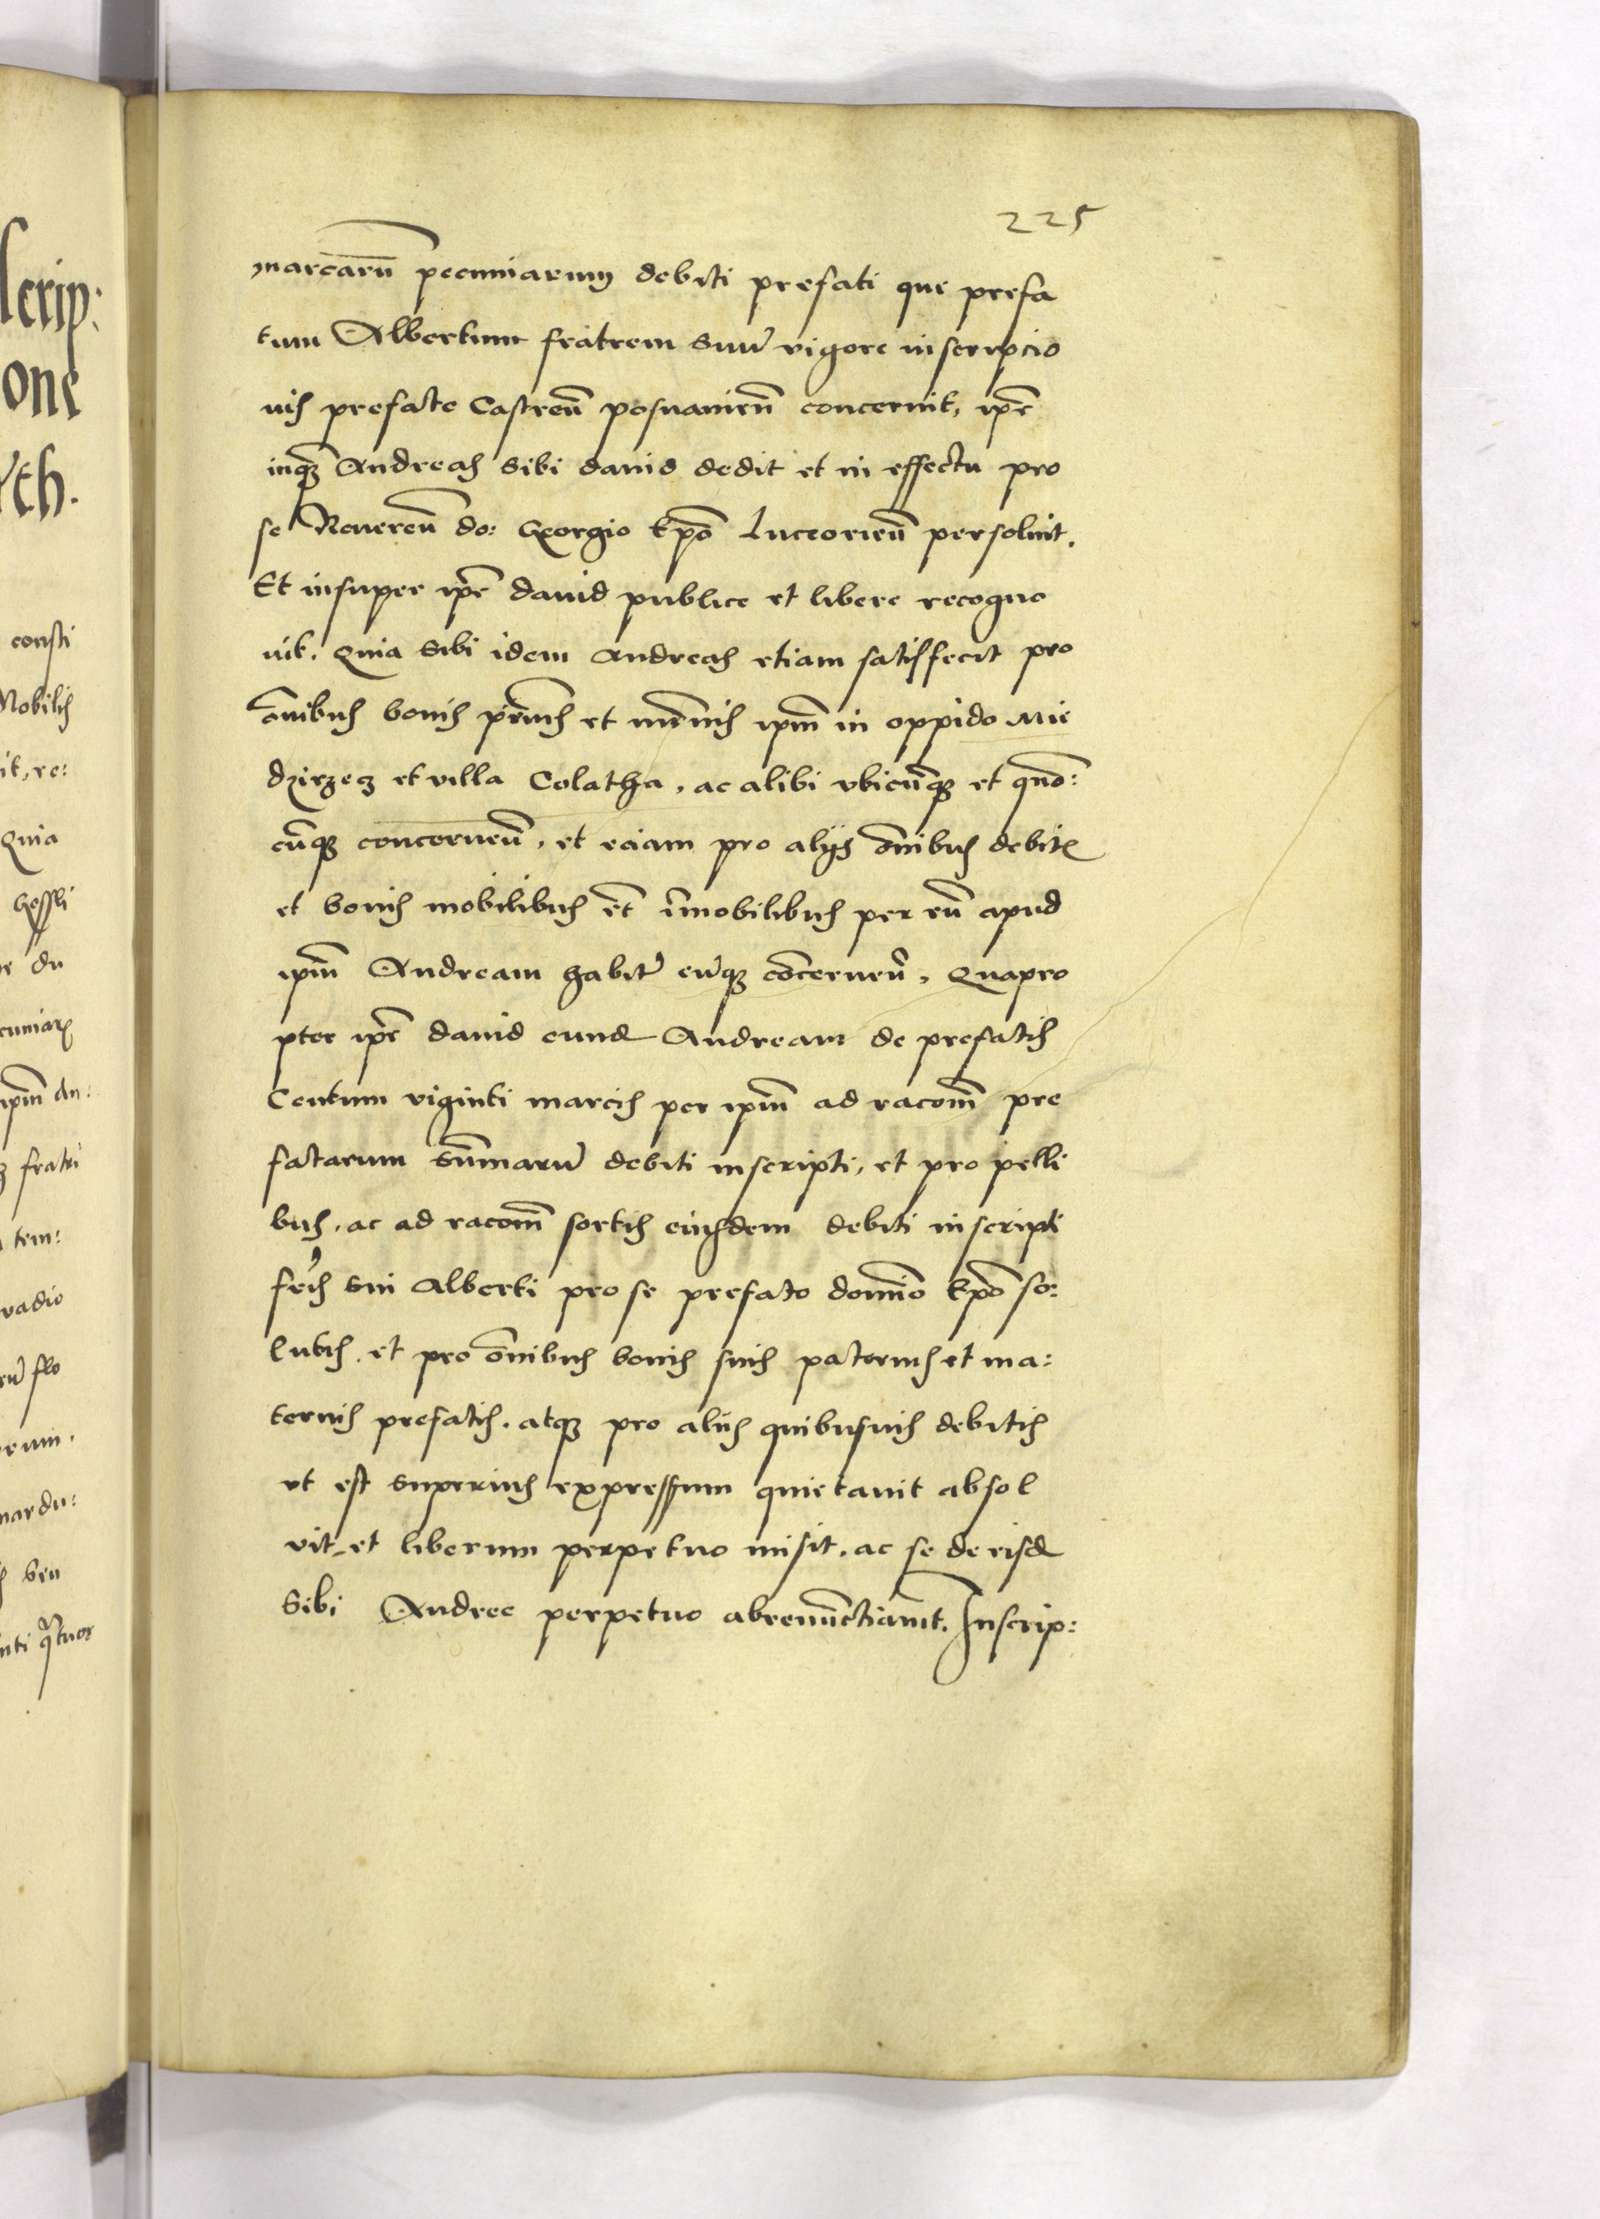 225
marcarū pecuniarum debiti prefati que prefa
tum Albertum fratrem suū vigore inscripcio
nis prefate Castreñ posnanieñ concernit, ip̄e
inq̃ Andreas sibi david dedit et in effectu pro
se Revereñ do: Georgio Ep̄o Luceorieñ persolvit.
Et insuper ip̄e david publice et libere recogno
vit. Quia sibi idem Andreas etiam satisfecit pro
om̄ibus bonis pr̄nis et mr̄nis ip̄m in oppido Mie
dzirzecz et villa Colatha, ac alibi vbicūq3 et quō:
cūq3 concerneñ, et eciam pro alijs om̄ibus debit
et bonis mobilibus et im̄obilibus per eū apud
ip̄m Andream habit eūq3 cōcerneñ, Quapro
pter ip̄e david eund Andream de prefatis
Centum viginti marcis per ip̄m ad racōm pre
fatarum sum̄arū debiti inscripti, et pro pelli
bus, ac ad racōm sortis eiusdem debiti inscripti
fr̄is sui Alberti pro se prefato domīo Ep̄o so:
lutis, et pro om̄ibus bonis suis paternis et ma:
ternis prefatis, atq3 pro aliis quibusvis debitis
ut est superius expressum quietavit absol
vit, et liberum perpetuo misit, ac se de eisd
sibi Andree perpetuo abrenūctiavit. Inscrip:
scrip:
one
th.
consti
Nobilis
it, re:
Quia
du
ip̄m An:
fratri
tem:
vadio
flo
mardu:
ben